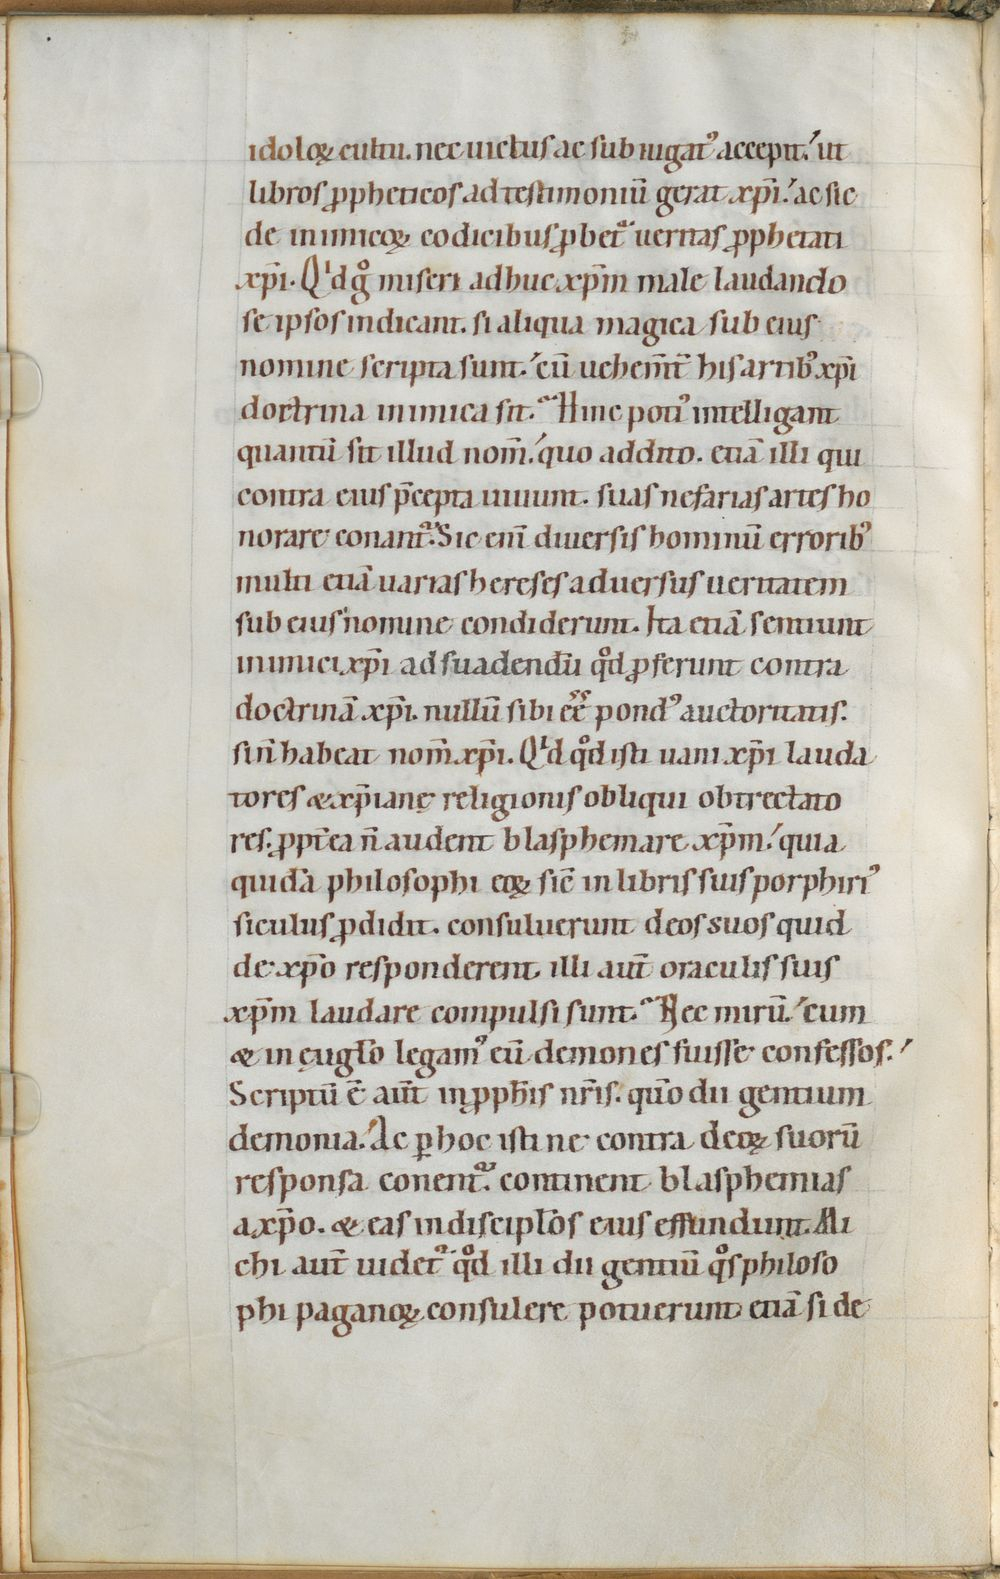 idoloꝝ cultu. nec uictus ac subiugatꝰ accepit.ˊ ut
libros ꝓpheticos ad testimoniū gerat xp̄i.ˊ ac sic
de inimicoꝝ codicibus ꝓbet᷑ ueritas ꝓphetati
xp̄i. Qͥd gͦ miseri adhuc xp̄m male laudando
se ipsos indicant. si aliqua magica sub eius
nomine scripta sunt.ˊ cū uehem̄t̄ his artibꝰ xp̄i
doctrina inimica sit.᷑ Hinc potiꝰ intelligant
quantū sit illud nom̄.ˊ quo addito. etiā illi qui
contra eius p̄cepta uiuunt. suas nefarias artes ho
norare conant᷑. Sic eni̅ diuersis hominū erroribꝰ
multi etiā uarias hereses aduersus ueritatem
sub eius nomine condiderunt. Ita etiā sentiunt
inimici xp̄i ad suadendū qͦd ꝓferunt contra
doctrinā xp̄i. nullū sibi ēē pondꝰ auctoritatis.
si n̄ habeat nom̄ xp̄i. Qͥd qͦd isti uani xp̄i lauda
tores & xp̄ianę religionis obliqui obtrectato
res. ꝓpt̄ea n̄ audent blasphemare xp̄m.ˊ quia
quidā philosophi eoꝝ sic̄ in libris suis porphiriꝰ
siculus ꝓdidit. consuluerunt deos suos quid
de xp̄o responderent. illi aut̄ oraculis suis
xp̄m laudare compulsi sunt.᷑ Nec mirū.ˊ cum
& in eugłio legamꝰ eū demones fuisse confessos.ˊ
Scriptū ē aut̄ in ꝓph̄is nr̄is. quō dii gentium
demonia. Ac ꝑ hoc isti ne contra deoꝝ suorū
responsa conent᷑. continent blasphemias
a xp̄o. & eas in discipłos eius effundunt. Mi
chi aut̄ uidet᷑ qͦd illi dii gentiū qͦs philoso
phi paganoꝝ consulere potuerunt etiā si de